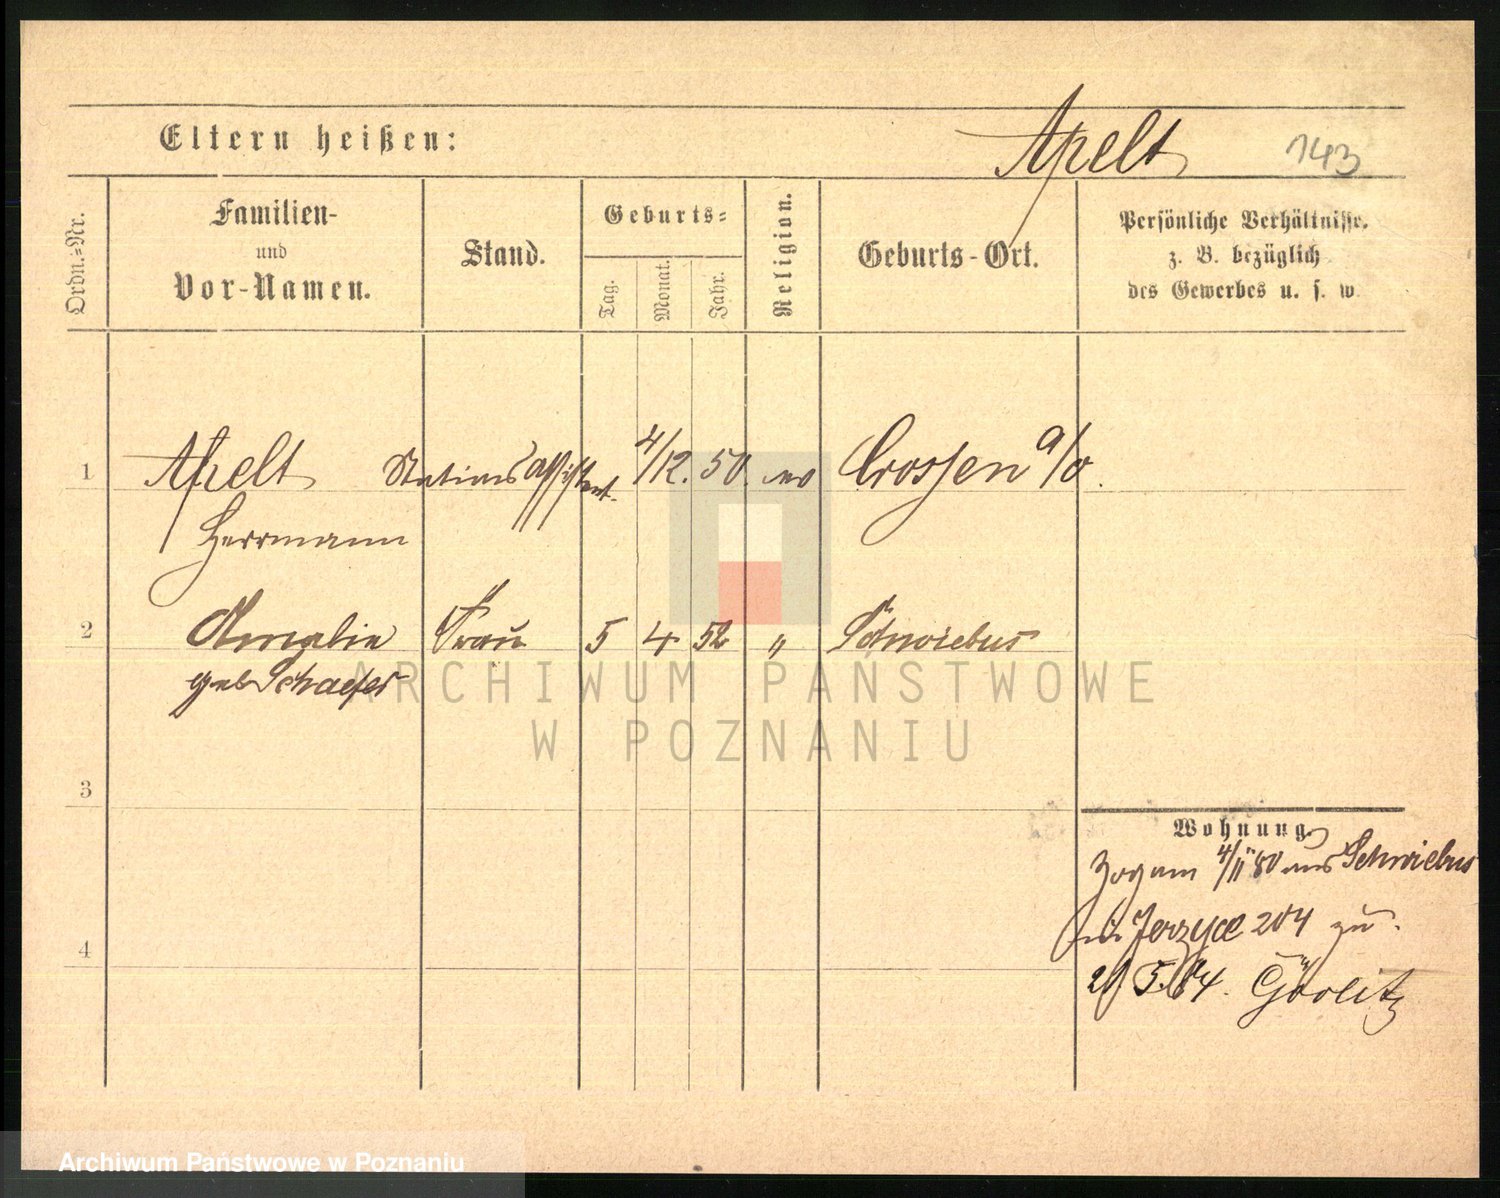 Eltern heißen:
Apelt 143
Ordn.-Nr.
Familien-
und
Vor-Namen.
Stand.
Geburts-
Tag.
Monat.
Jahr.
Religion.
Geburts-Ort.
Persönliche Verhältnisse,
z. B. bezüglich
des Gewerbes u. s. w.
1 Apelt Stationsassistent 4/12. 50. ev Crossen a/o.
Herrmann
2 Amalie Frau 5 4 52 " Schwiebus
geb Schaefer
ARCHIWUM PAŃSTWOWE
W POZNANIU
3
Wohnung.
Zog am 4/11 80 aus Schwiebus
Jerzyce 204 zu.
4
5. 84. Görlitz
Archiwum Państwowe w Poznaniu